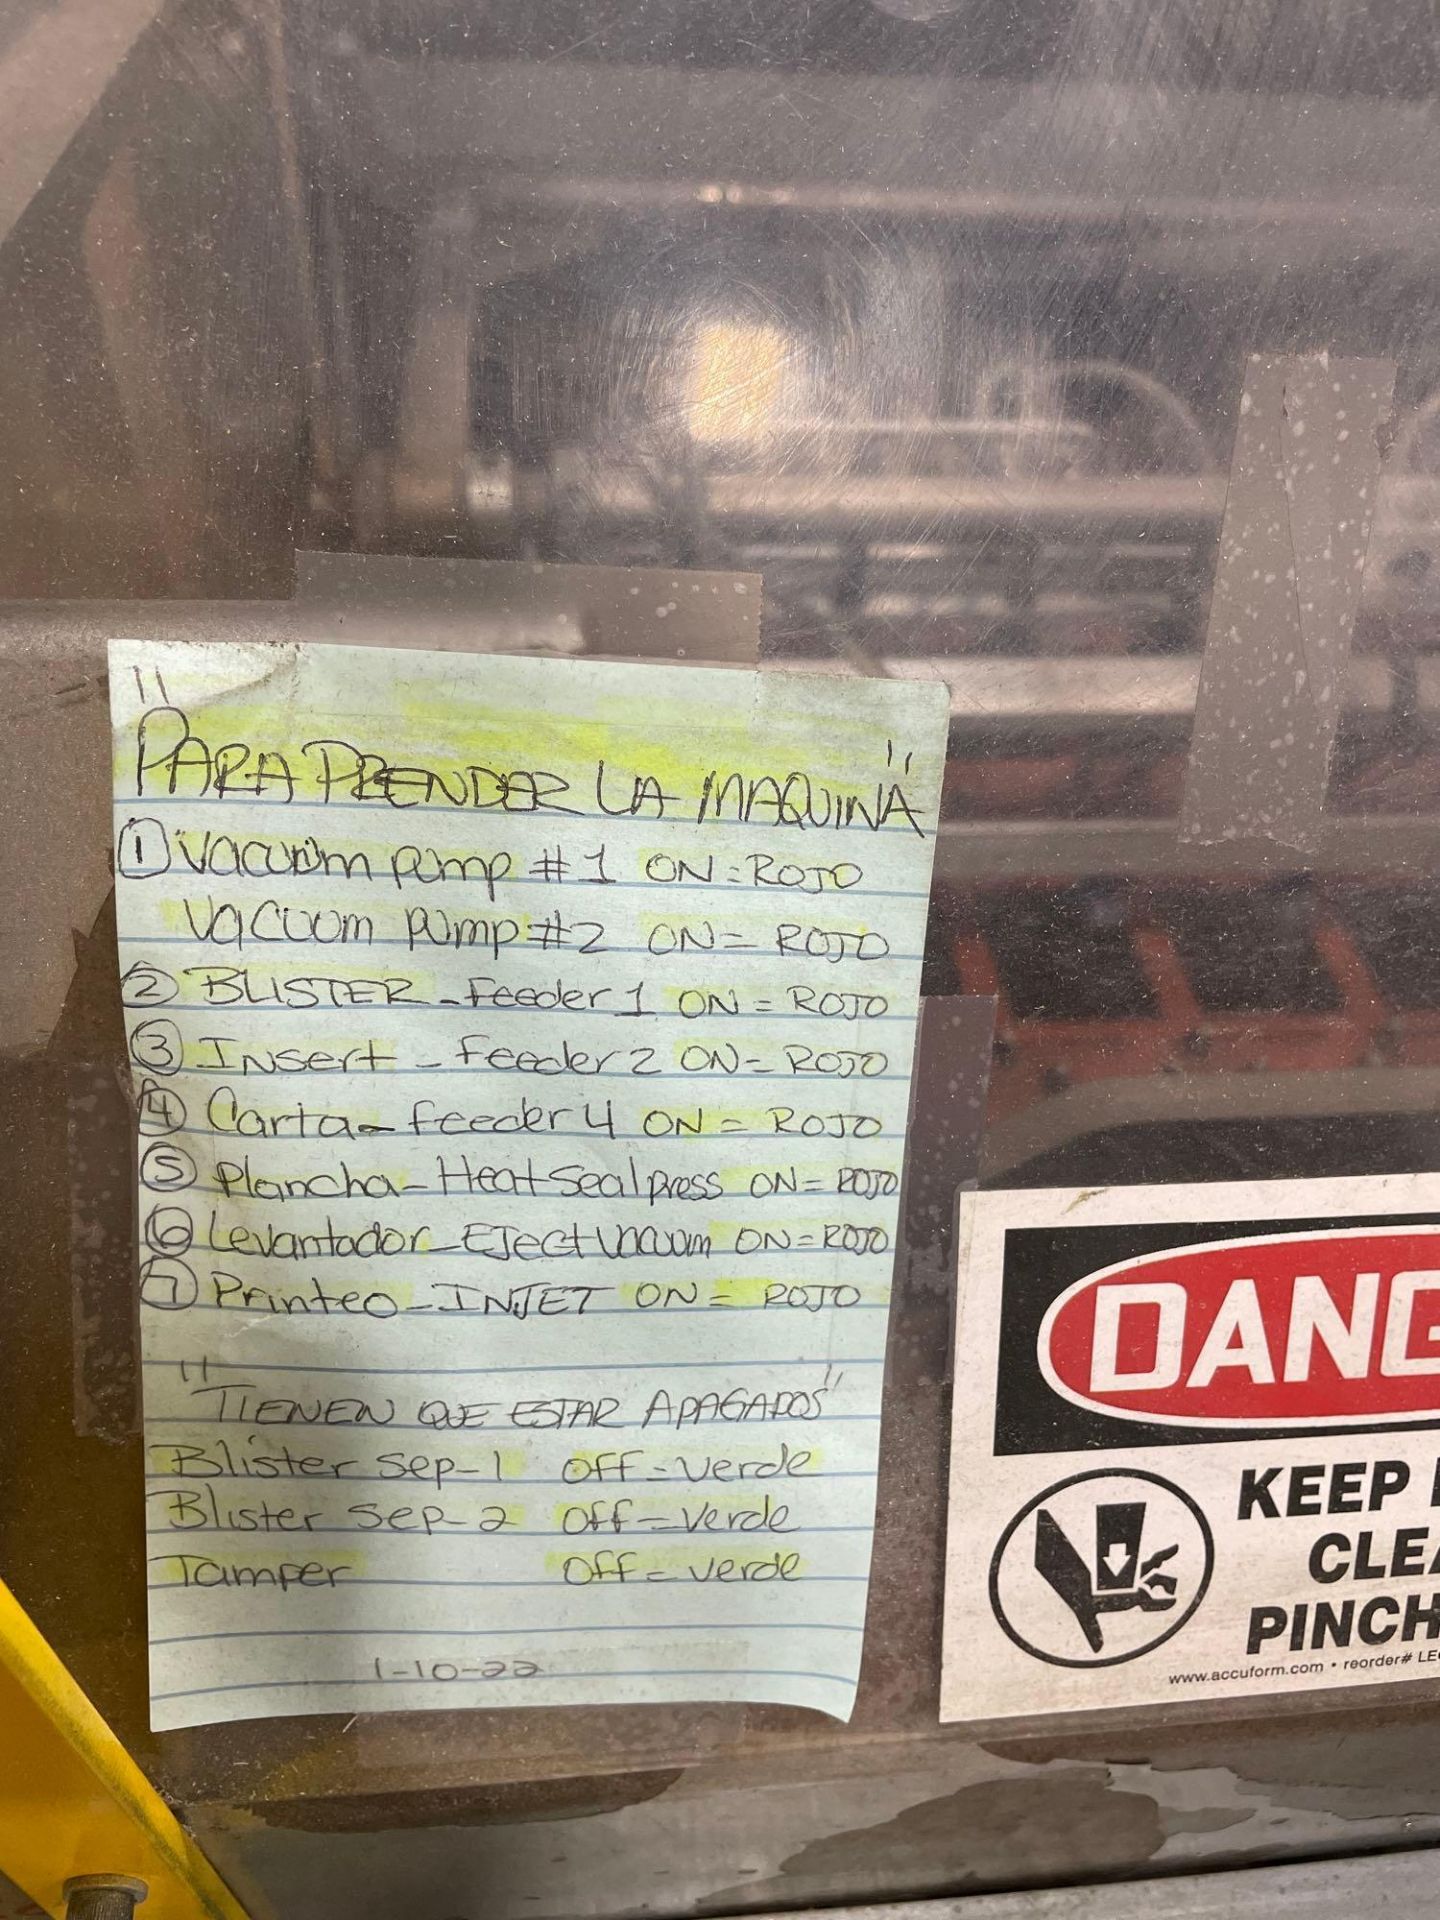 "PARA PRENDER LA MAQUINA"
① Vacuum pump #1 ON = ROJO
Vacuum pump #2 ON = ROJO
② BLISTER - Feeder 1 ON = ROJO
③ Insert - feeder 2 ON = ROJO
④ Carta - feeder 4 ON = ROJO
⑤ Plancha - Heat Seal press ON = ROJO
⑥ Levantador - Eject Vacuum ON = ROJO
⑦ Printeo - INJET ON = ROJO
"TIENEN QUE ESTAR APAGADOS"
Blister Sep-1 Off = Verde
Blister Sep-2 Off = Verde
Tamper Off = Verde
1-10-22
DANG
KEEP
CLEA
PINCH
www.accuform.com • reorder# LE